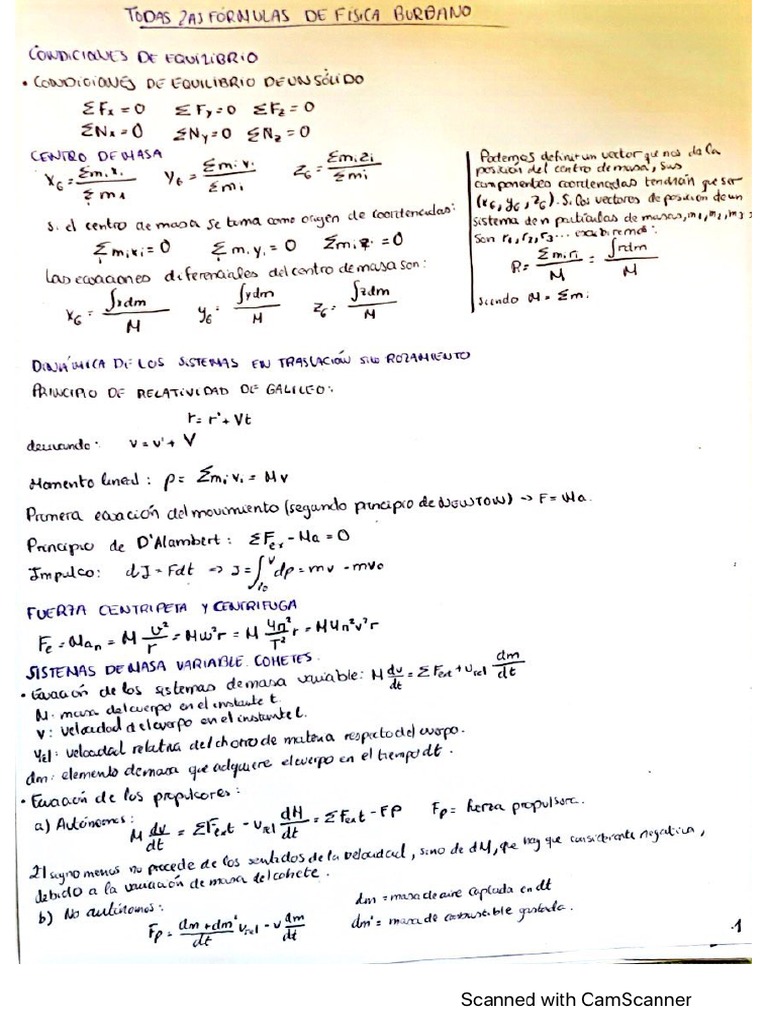 TODAS LAS FÓRMULAS DE FÍSICA BURBANO
CONDICIONES DE EQUILIBRIO
• CONDICIONES DE EQUILIBRIO DE UN SÓLIDO
ΣFx = 0 ΣFy = 0 ΣFz = 0
ΣNx = 0 ΣNy = 0 ΣNz = 0
CENTRO DE MASA
x_G = Σmixi / Σmi y_G = Σmiyi / Σmi z_G = Σmizi / Σmi
Si el centro de masa se toma como origen de coordenadas:
Σmixi = 0 Σmiyi = 0 Σmizi = 0
Las ecuaciones diferenciales del centro de masa son:
x_G = ∫xdm / M y_G = ∫ydm / M z_G = ∫zdm / M
Podemos definir un vector que nos da la
posición del centro de masa, sus
componentes coordenadas tendrán que ser
(x_G, y_G, z_G). Si los vectores de posición de un
sistema de n partículas de masas, m1, m2, m3
son r1, r2, r3... escribiremos:
R = Σmiri / M = ∫rdm / M
siendo M = Σmi
DINÁMICA DE LOS SISTEMAS EN TRASLACIÓN SIN ROZAMIENTO
PRINCIPIO DE RELATIVIDAD DE GALILEO:
r = r' + Vt
derivando: v = v' + V
Momento lineal: p = Σmivi = Mv
Primera ecuación del movimiento (segundo principio de NEWTON) → F = Ma.
Principio de D'Alambert: ΣFex - Ma = 0
Impulso: dJ = Fdt ⇒ J = ∫dp = mv - mv0
FUERZA CENTRIPETA Y CENTRIFUGA
Fc = Man = M v²/r = Mω²r = M 4π²/T² r = M4π²ν²r
SISTEMAS DE MASA VARIABLE. COHETES.
• Ecuación de los sistemas de masa variable: M dv/dt = ΣFext + vrel dm/dt
M: masa del cuerpo en el instante t.
v: velocidad del cuerpo en el instante t.
vrel: velocidad relativa del chorro de materia respecto del cuerpo.
dm: elemento de masa que adquiere el cuerpo en el tiempo dt.
• Ecuación de los propulsores:
a) Autónomos: M dv/dt = ΣFext - vrel dM/dt = ΣFext - FP Fp = fuerza propulsora.
El signo menos no procede de los sentidos de la velocidad, sino de dM, que hay que considerarla negativa,
debido a la variación de masa del cohete.
b) No autónomos: Fp = (dm + dm')/dt vrel - v dm/dt
dm = masa de aire captada en dt
dm' = masa de combustible gastada.
.1
Scanned with CamScanner